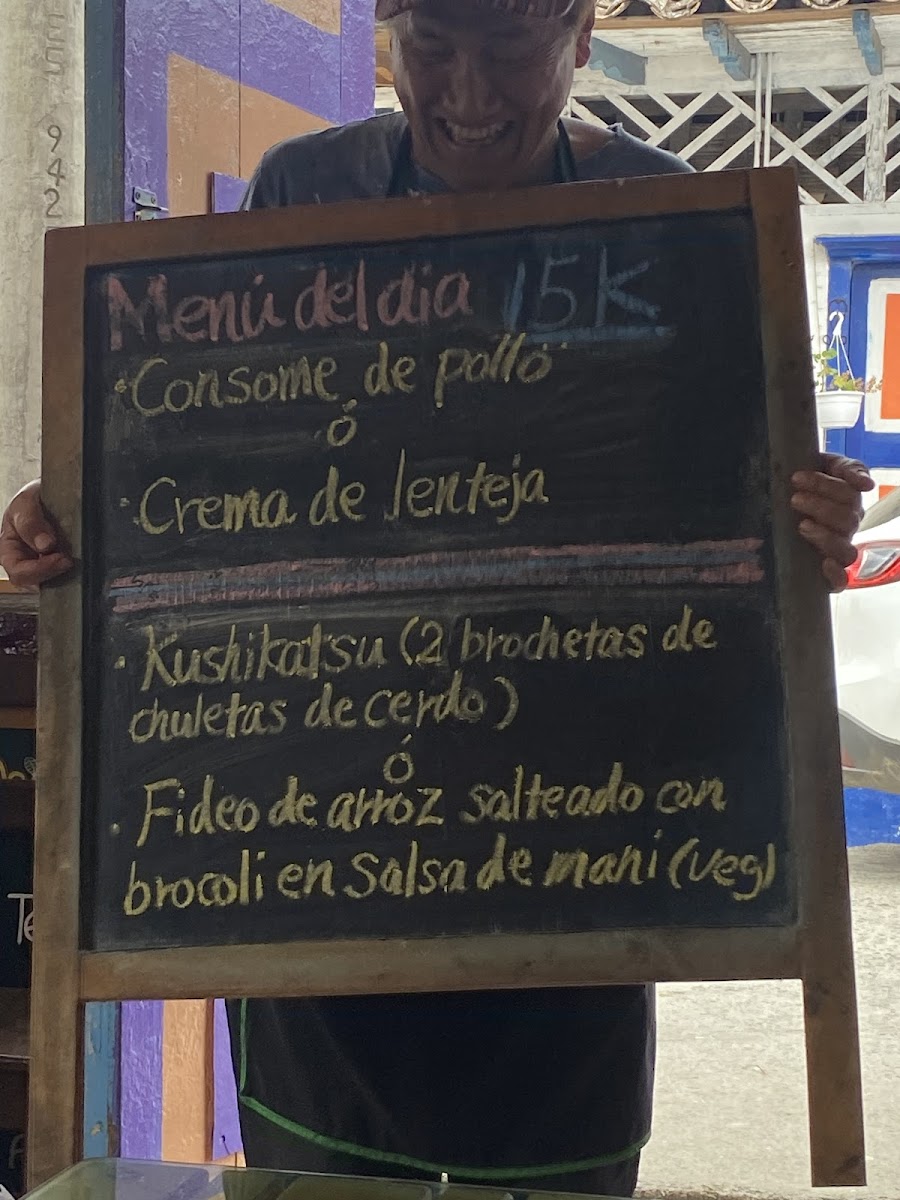 942
Menú del dia 15K
· Consome de pollo
ó
· Crema de lenteja
· Kushikatsu (2 brochetas de
chuletas de cerdo)
ó
· Fideo de arroz salteado con
brocoli en salsa de mani (veg)
Te